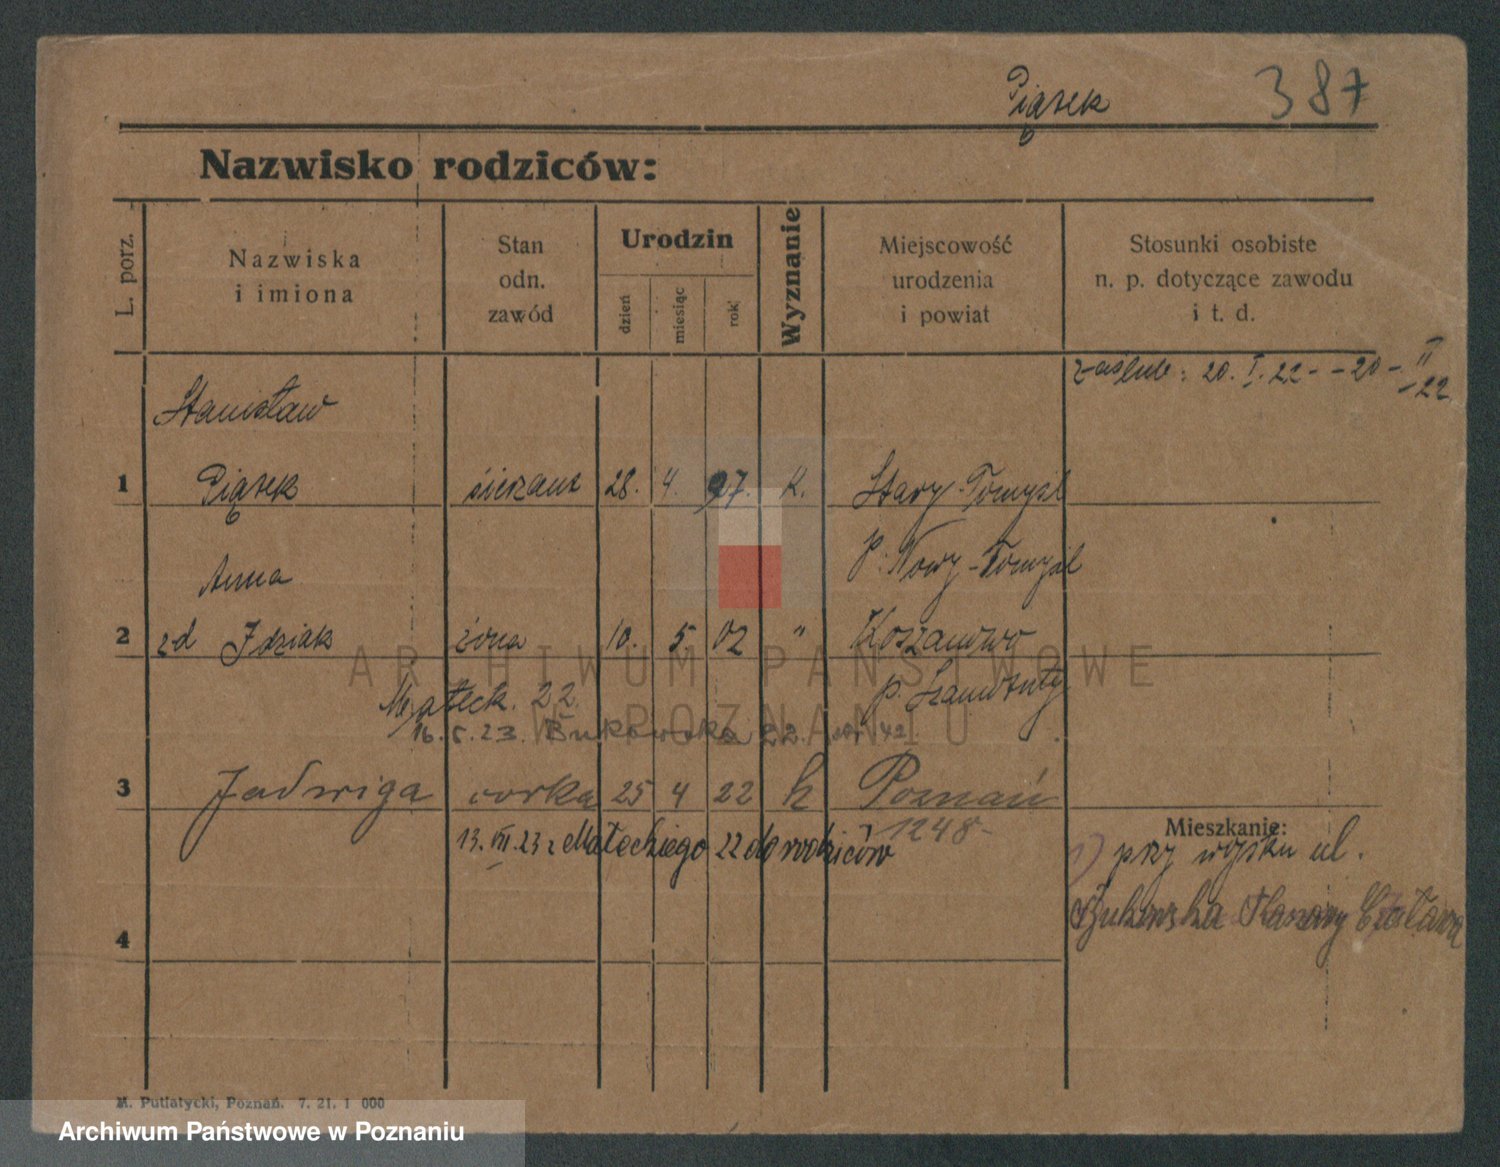 Piątek 387
Nazwisko rodziców:
L. porz.
Nazwiska
i imiona
Stan
odn.
zawód
Urodzin
dzień
miesiąc
rok
Wyznanie
Miejscowość
urodzenia
i powiat
Stosunki osobiste
n. p. dotyczące zawodu
i t. d.
zaślub: 20. I. 22 - - 20 - II
- 22
Stanisław
1 Piątek sierżant 28. 4. 97. k. Stary-Tomyśl
p. Nowy-Tomyśl
Anna
2 zd Idziak żona 10. 5. 02 " Koszanowo
p. Szamotuły
Małeck. 22
16. 5. 23. Bukowska 22. 42
3 Jadwiga córka 25 4 22 k Poznań
1248-
13. VII. 23 z Małeckiego 22 do rodziców
Mieszkanie:
1) przy wojsku ul.
Bukowska
4
M. Putiatycki, Poznań. 7. 21. 1 000
ARCHIWUM PAŃSTWOWE
W POZNANIU
Archiwum Państwowe w Poznaniu